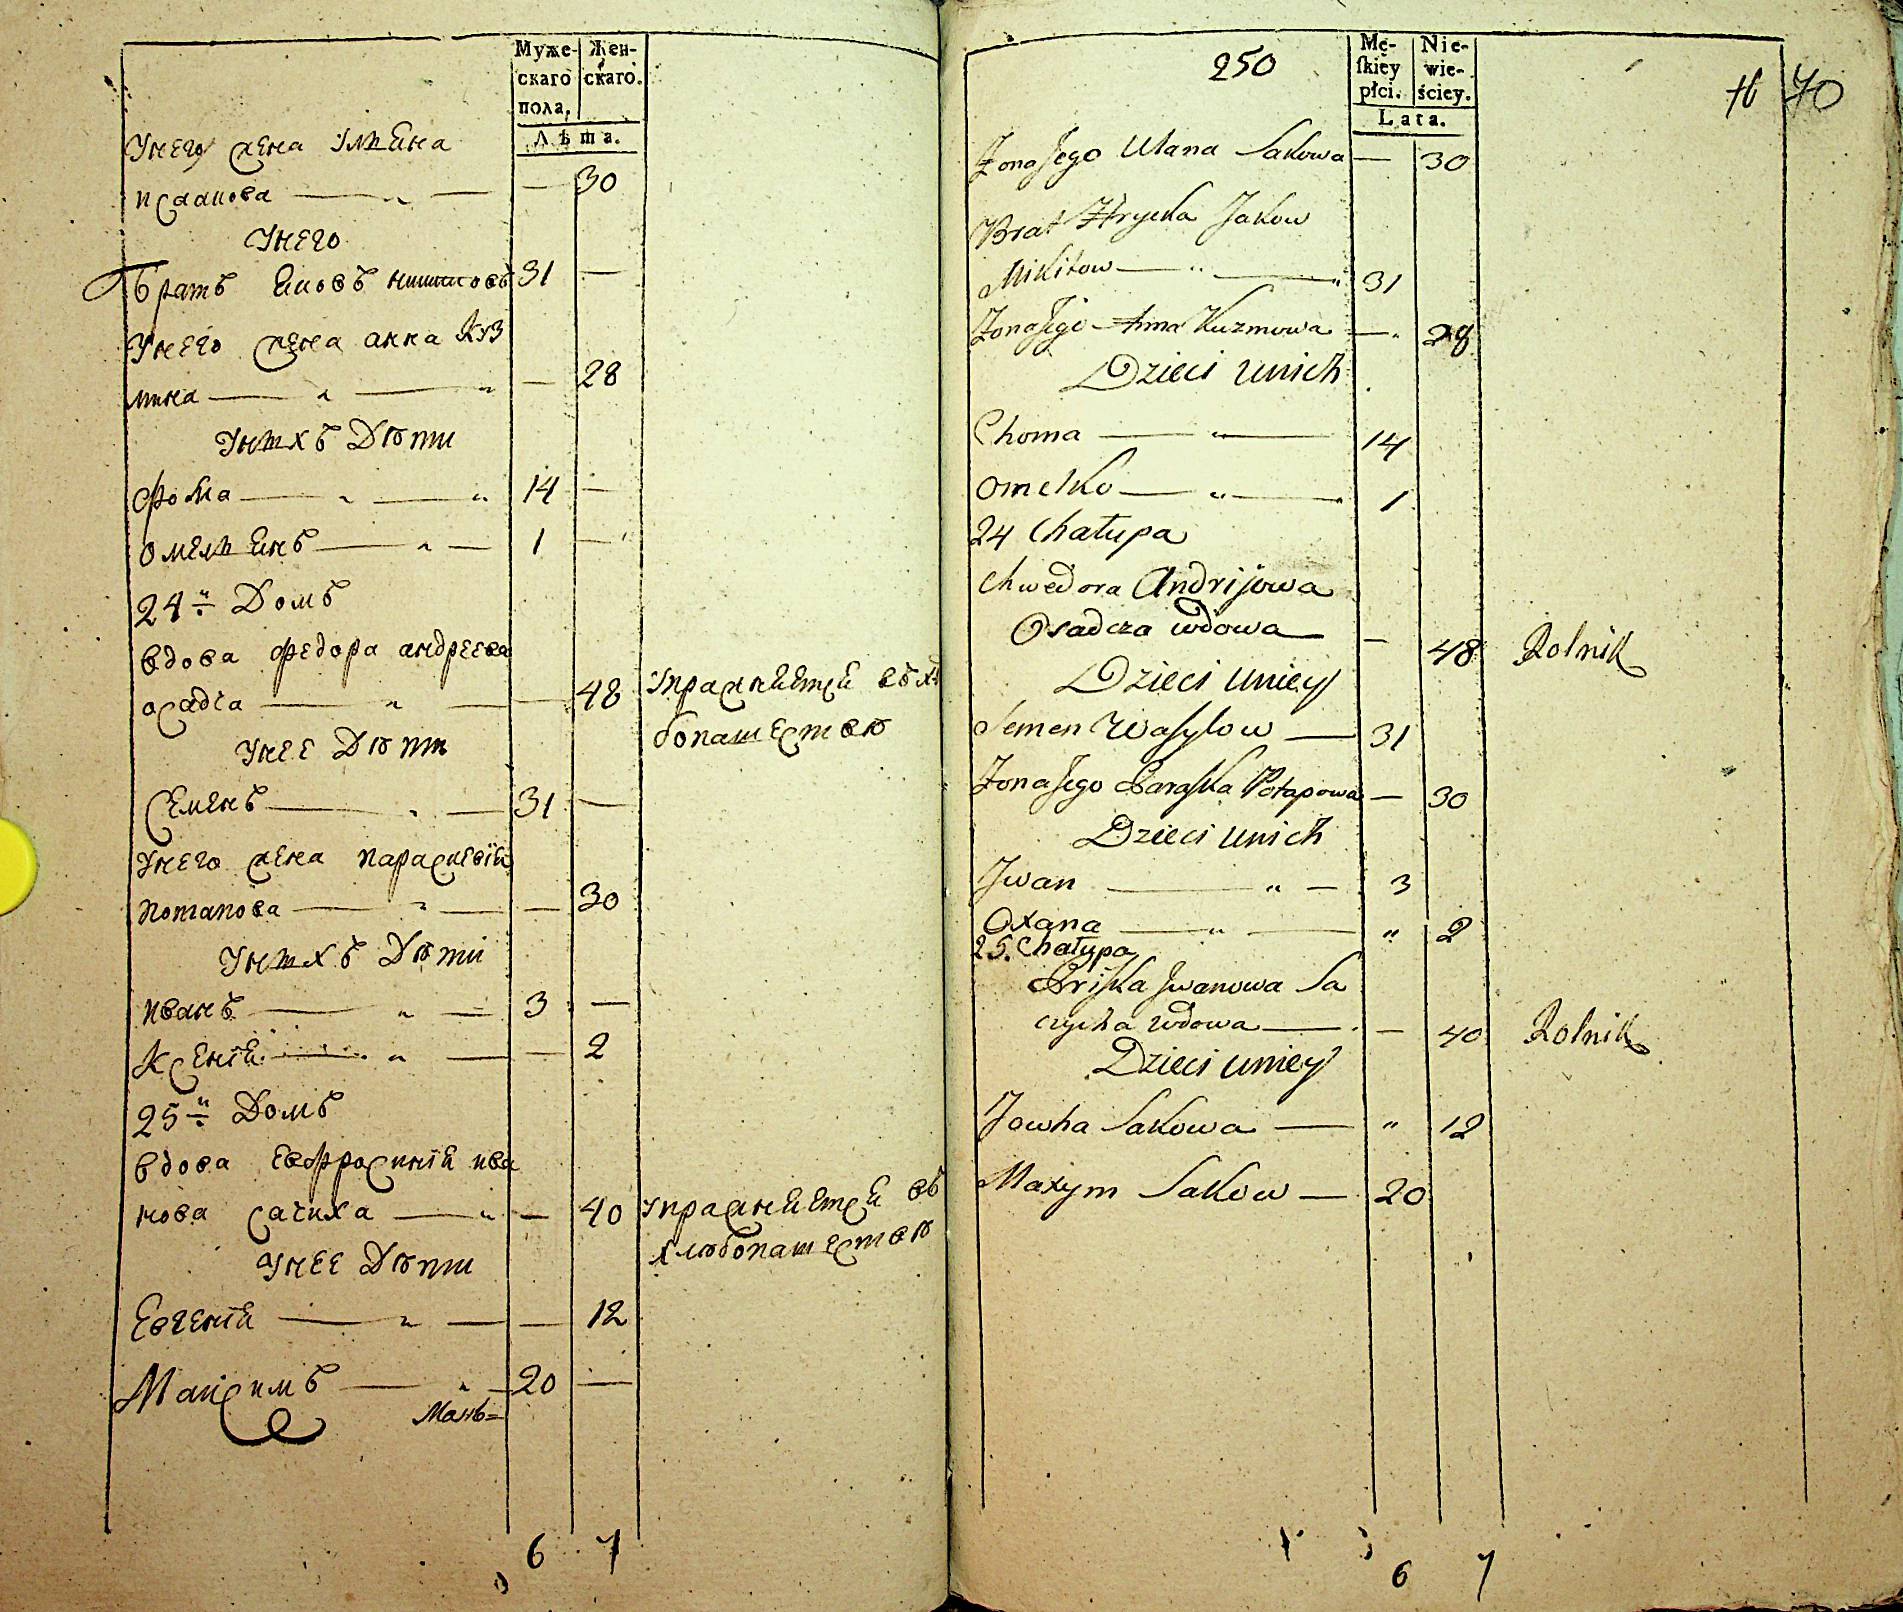 Муже-
скаго
пола.
Жен-
скаго.
Лѣта.
Унего жена Улияна
Исаакова — „ — — 30
Унего
Братъ Яковъ Никитовъ 31 —
Унего жена анна Куз
мина — „ — „ — 28
Унихъ Дѣти
Фома — „ — „ 14 —
омельянъ — „ — 1 —
24й Домъ
вдова Федора андреева
осадча — „ — — 48 Упражняется въ хлѣ
бопашествѣ
Унее Дѣти
Семенъ — „ — 31 —
Унего жена параскевія
Потапова — „ — — 30
Унихъ Дѣти
Иванъ — „ — 3 —
Ксенія — „ — — 2
25й Домъ
вдова Евфросинія ива
нова сачиха — „ — 40 Упражняется въ
хлѣбопашествѣ
Унее Дѣти
Евгенія — „ — — 12
Максимъ — „ — 20 —
Макъ=
6 7
250
Mę-
skiey
płci.
Nie-
wie-
ściey.
Lata.
70
Zona Jego Ulana Sakowa — 30
Brat Hrycka Jakow
Mikitow — „ — „ 31
Zona Jego Anna Kuzmowa — „ 28
Dzieci unich
Choma — „ — 14
Omelko — „ — „ 1
24 Chałupa
Chwedora Andrijowa
Osadcza wdowa — — 48 Rolnik
Dzieci uniey
Semen Wasylow — 31
Zona Jego Paraska Potapowa — 30
Dzieci unich
Jwan — „ — 3
Oxana — „ — „ 2
25. Chałupa
Priska Jwanowa Sa
czycha wdowa — — 40 Rolnik
Dzieci uniey
Jowha Sakowa — „ 12
Maxym Sakow — 20
6 7